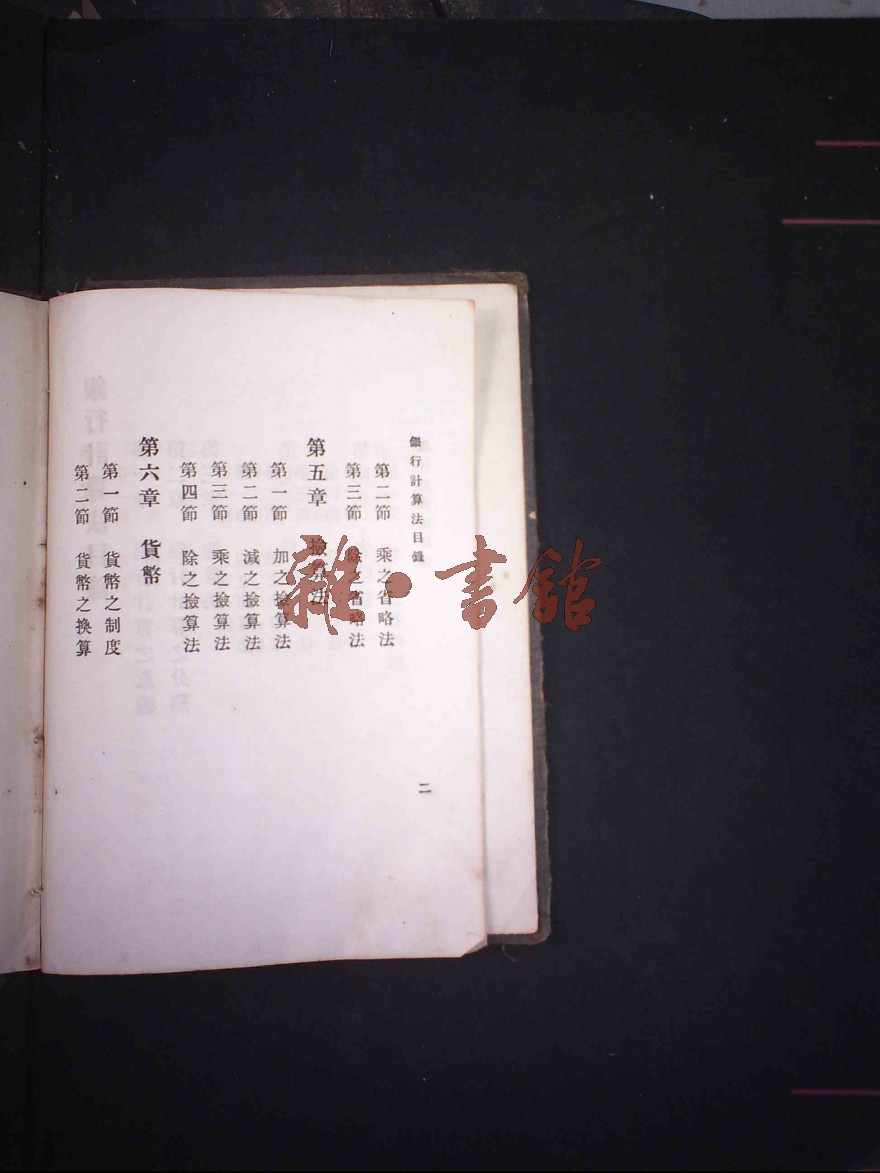 銀行計算法目錄
第二節 乘之省略法
第三節 除之省略法
第五章 撿算法
第一節 加之撿算法
第二節 減之撿算法
第三節 乘之撿算法
第四節 除之撿算法
第六章 貨幣
第一節 貨幣之制度
第二節 貨幣之換算
二
雜·書館